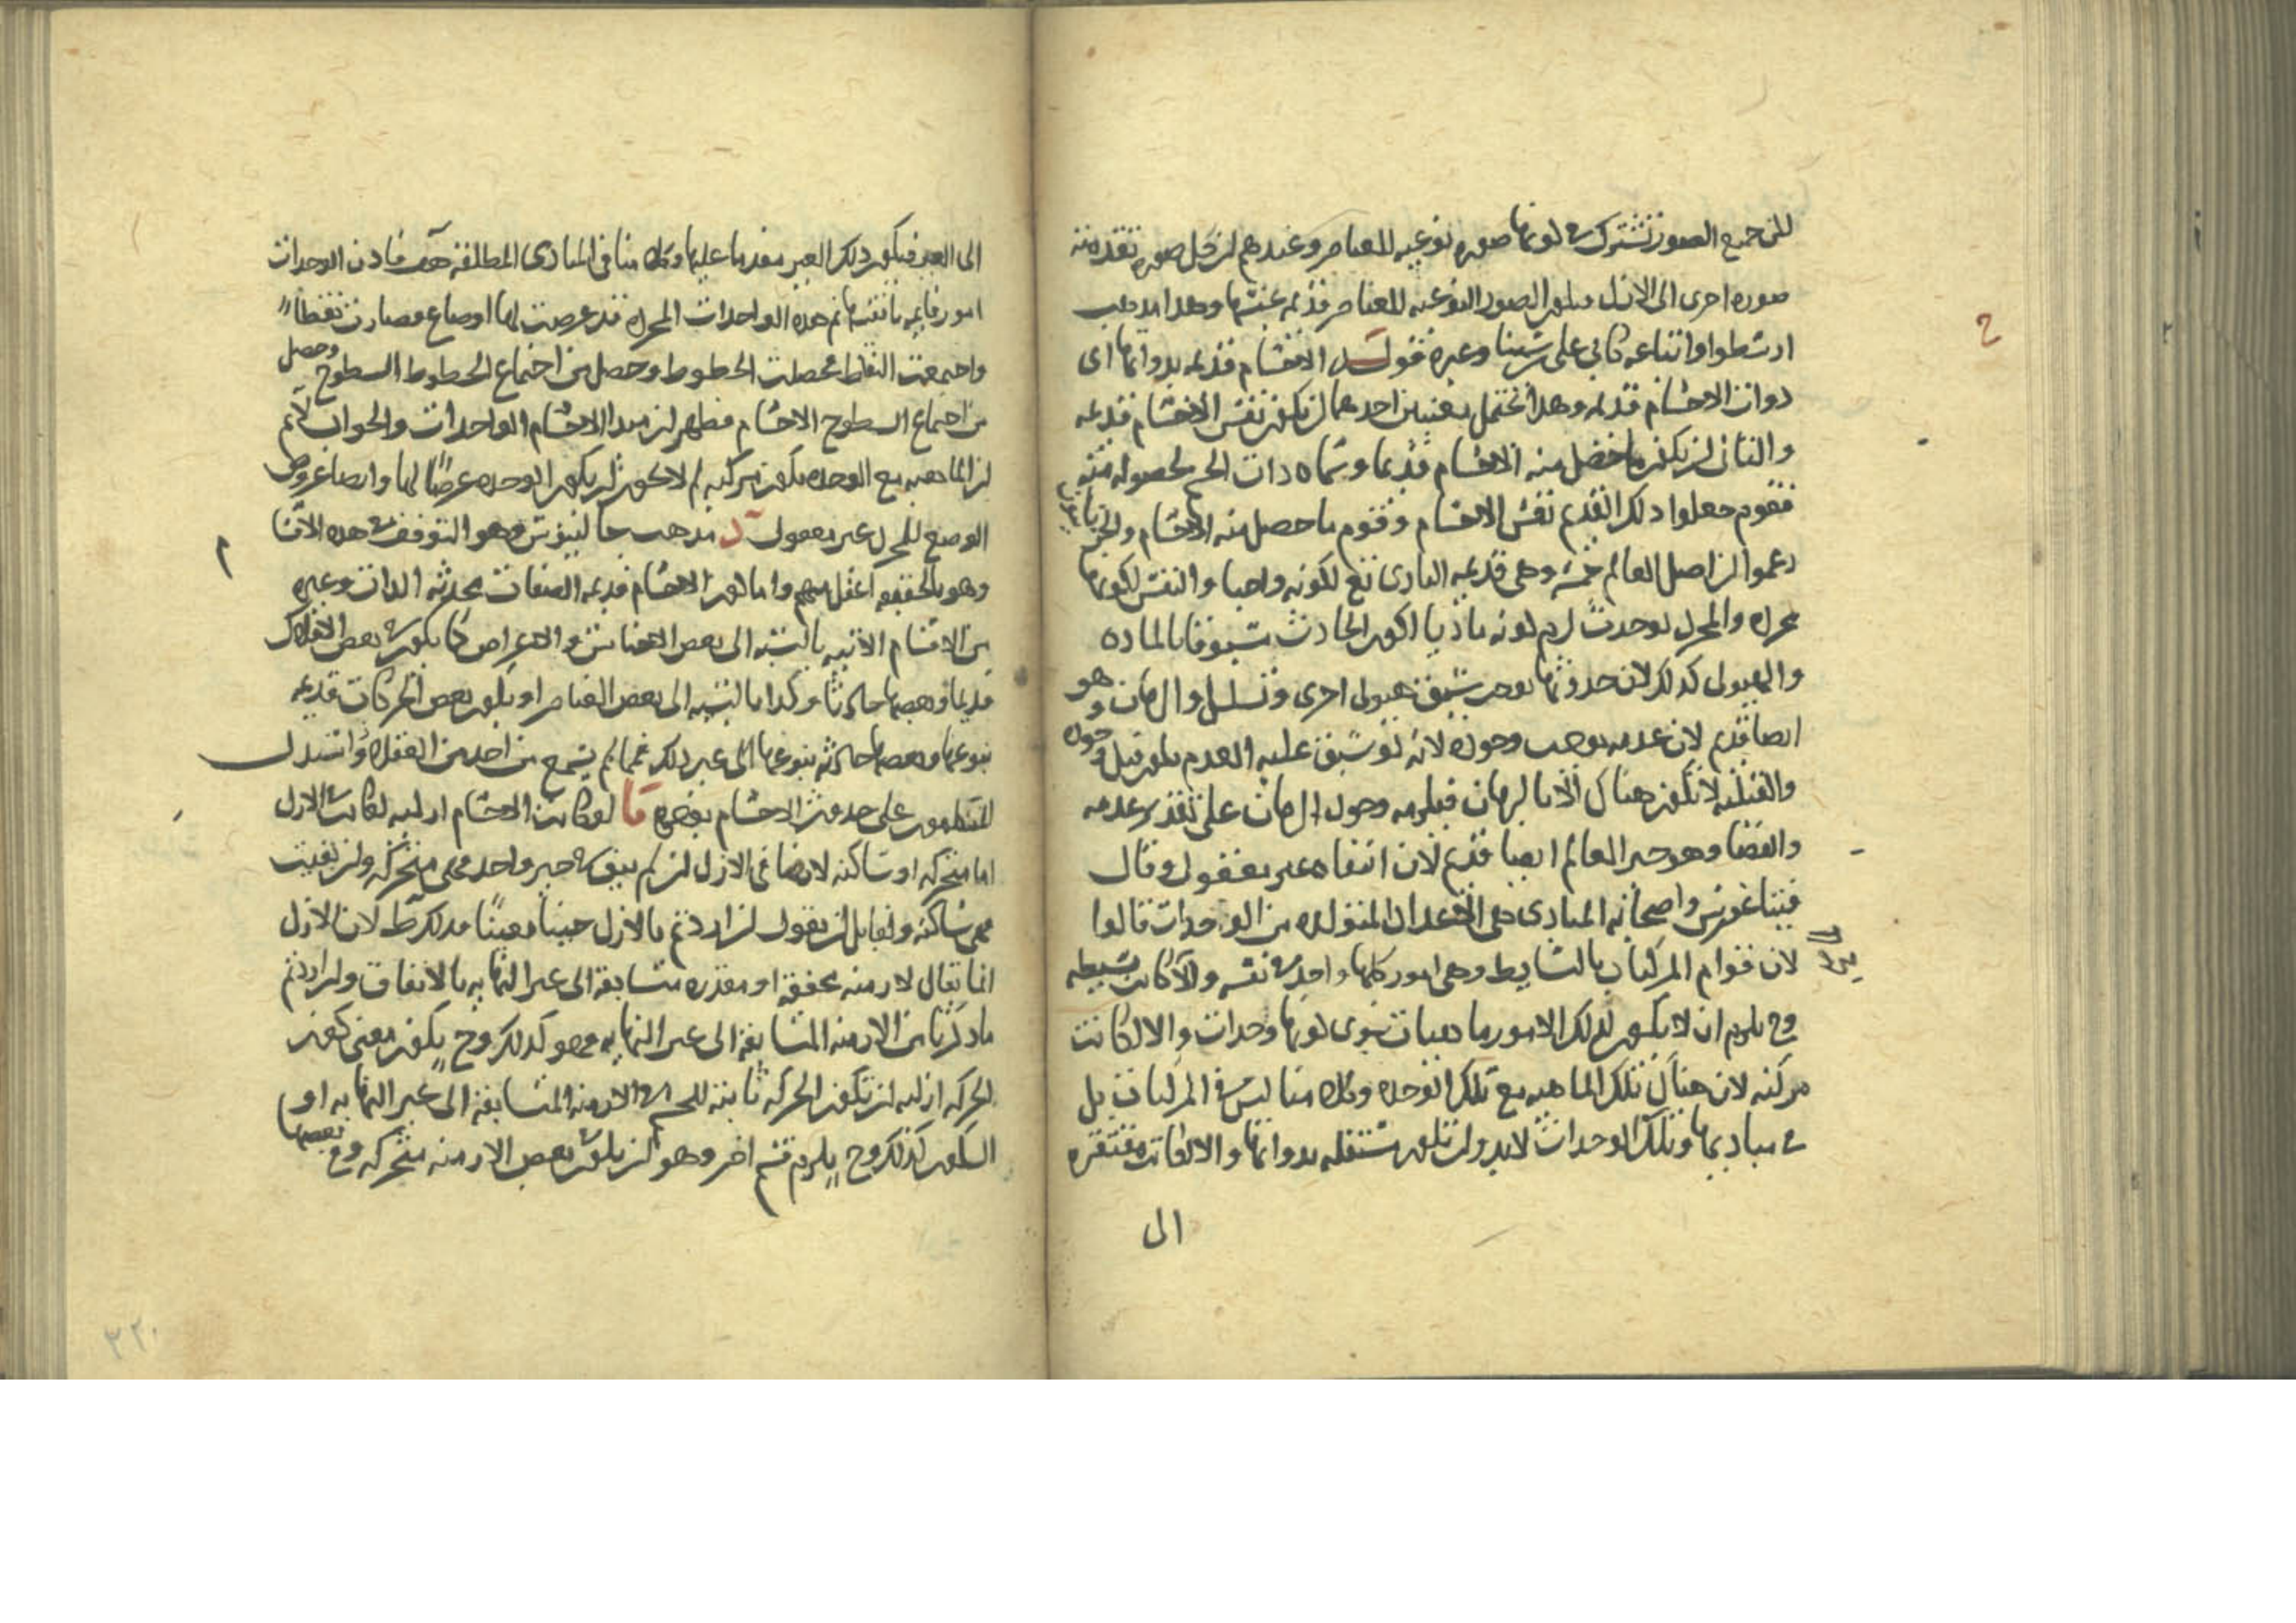 لكن جميع الصور تشترك في كونها صوره نوعيه للعناصر وعندهم ان قبل كل صوره تقدمته
صوره اخرى الى الازل فيكون الصور النوعيه للعناصر قديمه بجنسها وهذا مذهب
ارسطو واتباعه كابي علي بن سينا وغيره قوله الاجسام قديمه بذواتها اي
ذوات الاجسام قديمه وهذا يحتمل معنيين احدهما ان يكون نفس الاجسام قديمه
والثاني ان يكون ما حصل منه الاجسام قديما وسماه ذات الجسم لحصوله منه
فقوم جعلوا ذلك القديم نفس الاجسام وقوم ما حصل منه الاجسام والحرنانيون
زعموا ان اصل العالم خمسه وهي قديمه البارى تع لكونه واجبا والنفس لكونها
مجرده والمجرد لو حدث لزم كونه ماديا لكون الحادث مسبوقا بالماده
والهيولى كذلك لان حدوثها يوجب سبق هيولى اخرى وتسلسل والزمان وهو
ايضا قديم لان عدمه يوجب وجوده لانه لو سبق عليه العدم يكون قبل وجوده
والقبليه لا تكون هناك الا بالزمان فيلزم وجود الزمان على تقدير عدمه
والفضا وهو حيز العالم ايضا قديم لان انتفاه غير معقول وقال
فيثاغورس واصحابه المبادى هي الاعداد المتولده من الواحدات قالوا
لان قوام المركبات بالبسايط وهي امور كلها واحد في نفسه والا لكانت بسيطه
وح يلزم ان لا يكون لتلك الامور ماهيات سوى كونها وحدات والا لكانت
مركبه لان هناك تلك الماهيه مع تلك الوحده وكلامنا ليس في المركبات بل
في مباديها وتلك الوحدات لابد وان تكون مستقله بذواتها والا لكانت مفتقره
الى
الى الغير فيكون ذلك الغير مقدما عليها وكلامنا في المبادى المطلقه هف فاذن الوحدات
امور قايمه بانفسها ثم هذه الواحدات المجرده قد عرضت لها اوضاع فصارت نقطا
واجتمعت النقاط فحصلت الخطوط وحصل من اجتماع الخطوط السطوح وحصل
من اجتماع السطوح الاجسام فظهر ان مبدا الاجسام الواحدات والجواب لا نم
ان الماهيه مع الوحده يكون مركبه لم لا يجوز ان يكون الوحده عرضا لها وايضا عروض
الوضع للمجرد غير معقول د مذهب جالينوس وهو التوقف في هذه الاقسام
وهو بالحقيقه اعقل منهم واما كون الاجسام قديمه الصفات محدثه الذات وغيره
من الاقسام الاتيه بالنسبه الى بعض الاجناس والاعراض كما يكون بعض الافلاك
قديما وبعضها حادثا وكذا بالنسبه الى بعض العناصر او يكون بعض الحركات قديمه
بنوعها وبعضها حادثه بنوعها الى غير ذلك فمما لم يسمع من احد من العقلاء واستدل
المتكلمون على حدوث الاجسام بوجوه ا لو كانت الاجسام ازليه لكانت في الازل
اما متحركه او ساكنه لانها في الازل ان لم يبق في حيز واحد فهي متحركه وان بقيت
فهي ساكنه ولقايل ان يقول ان اردتم بالازل حينا معينا فذلك بط لان الازل
انما يقال لازمنه محققه او مقدره متسابقه الى غير النهايه بالاتفاق وان اردتم
ما ذكرنا من الازمنه المتسابقه الى غير النهايه فهو كذلك وح يكون معنى كون
الحركه ازليه ان تكون الحركه ثابته للجسم في الازمنه المتسابقه الى غير النهايه او
السكون كذلك وح يلزم قسم اخر وهو ان يكون في بعض الازمنه متحركه وفي بعضها
٣٢٠